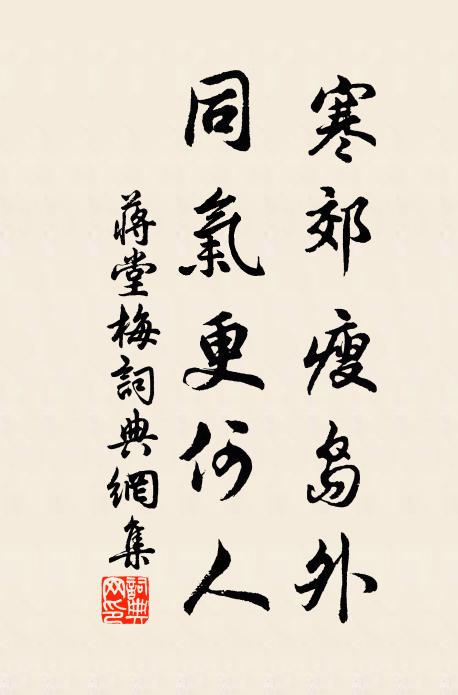 寒郊瘦島外
同氣更何人
蔣堂梅詞典網集
詞典网印